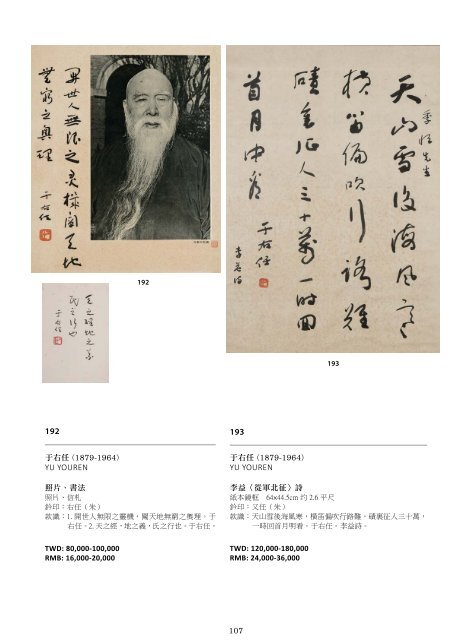 開世人無限之靈機闢天地
無窮之奧理
于右任
192
天之經地之義
民之行也
于右任
先生
天山雪後海風寒
橫笛偏吹行路難
磧裏征人三十萬一時回
首月中看
于右任
李益詩
193
192
于右任 (1879-1964)
YU YOUREN
照片、書法
照片、信札
鈐印：右任（朱）
款識：1. 開世人無限之靈機，闢天地無窮之奧理。于
右任。2. 天之經，地之義，氏之行也。于右任。
TWD: 80,000-100,000
RMB: 16,000-20,000
193
于右任 (1879-1964)
YU YOUREN
李益〈從軍北征〉詩
紙本鏡框 64x44.5cm 約 2.6 平尺
鈐印：又任（朱）
款識：天山雪後海風寒，橫笛偏吹行路難。磧裏征人三十萬，
一時回首月明看。于右任。李益詩。
TWD: 120,000-180,000
RMB: 24,000-36,000
107